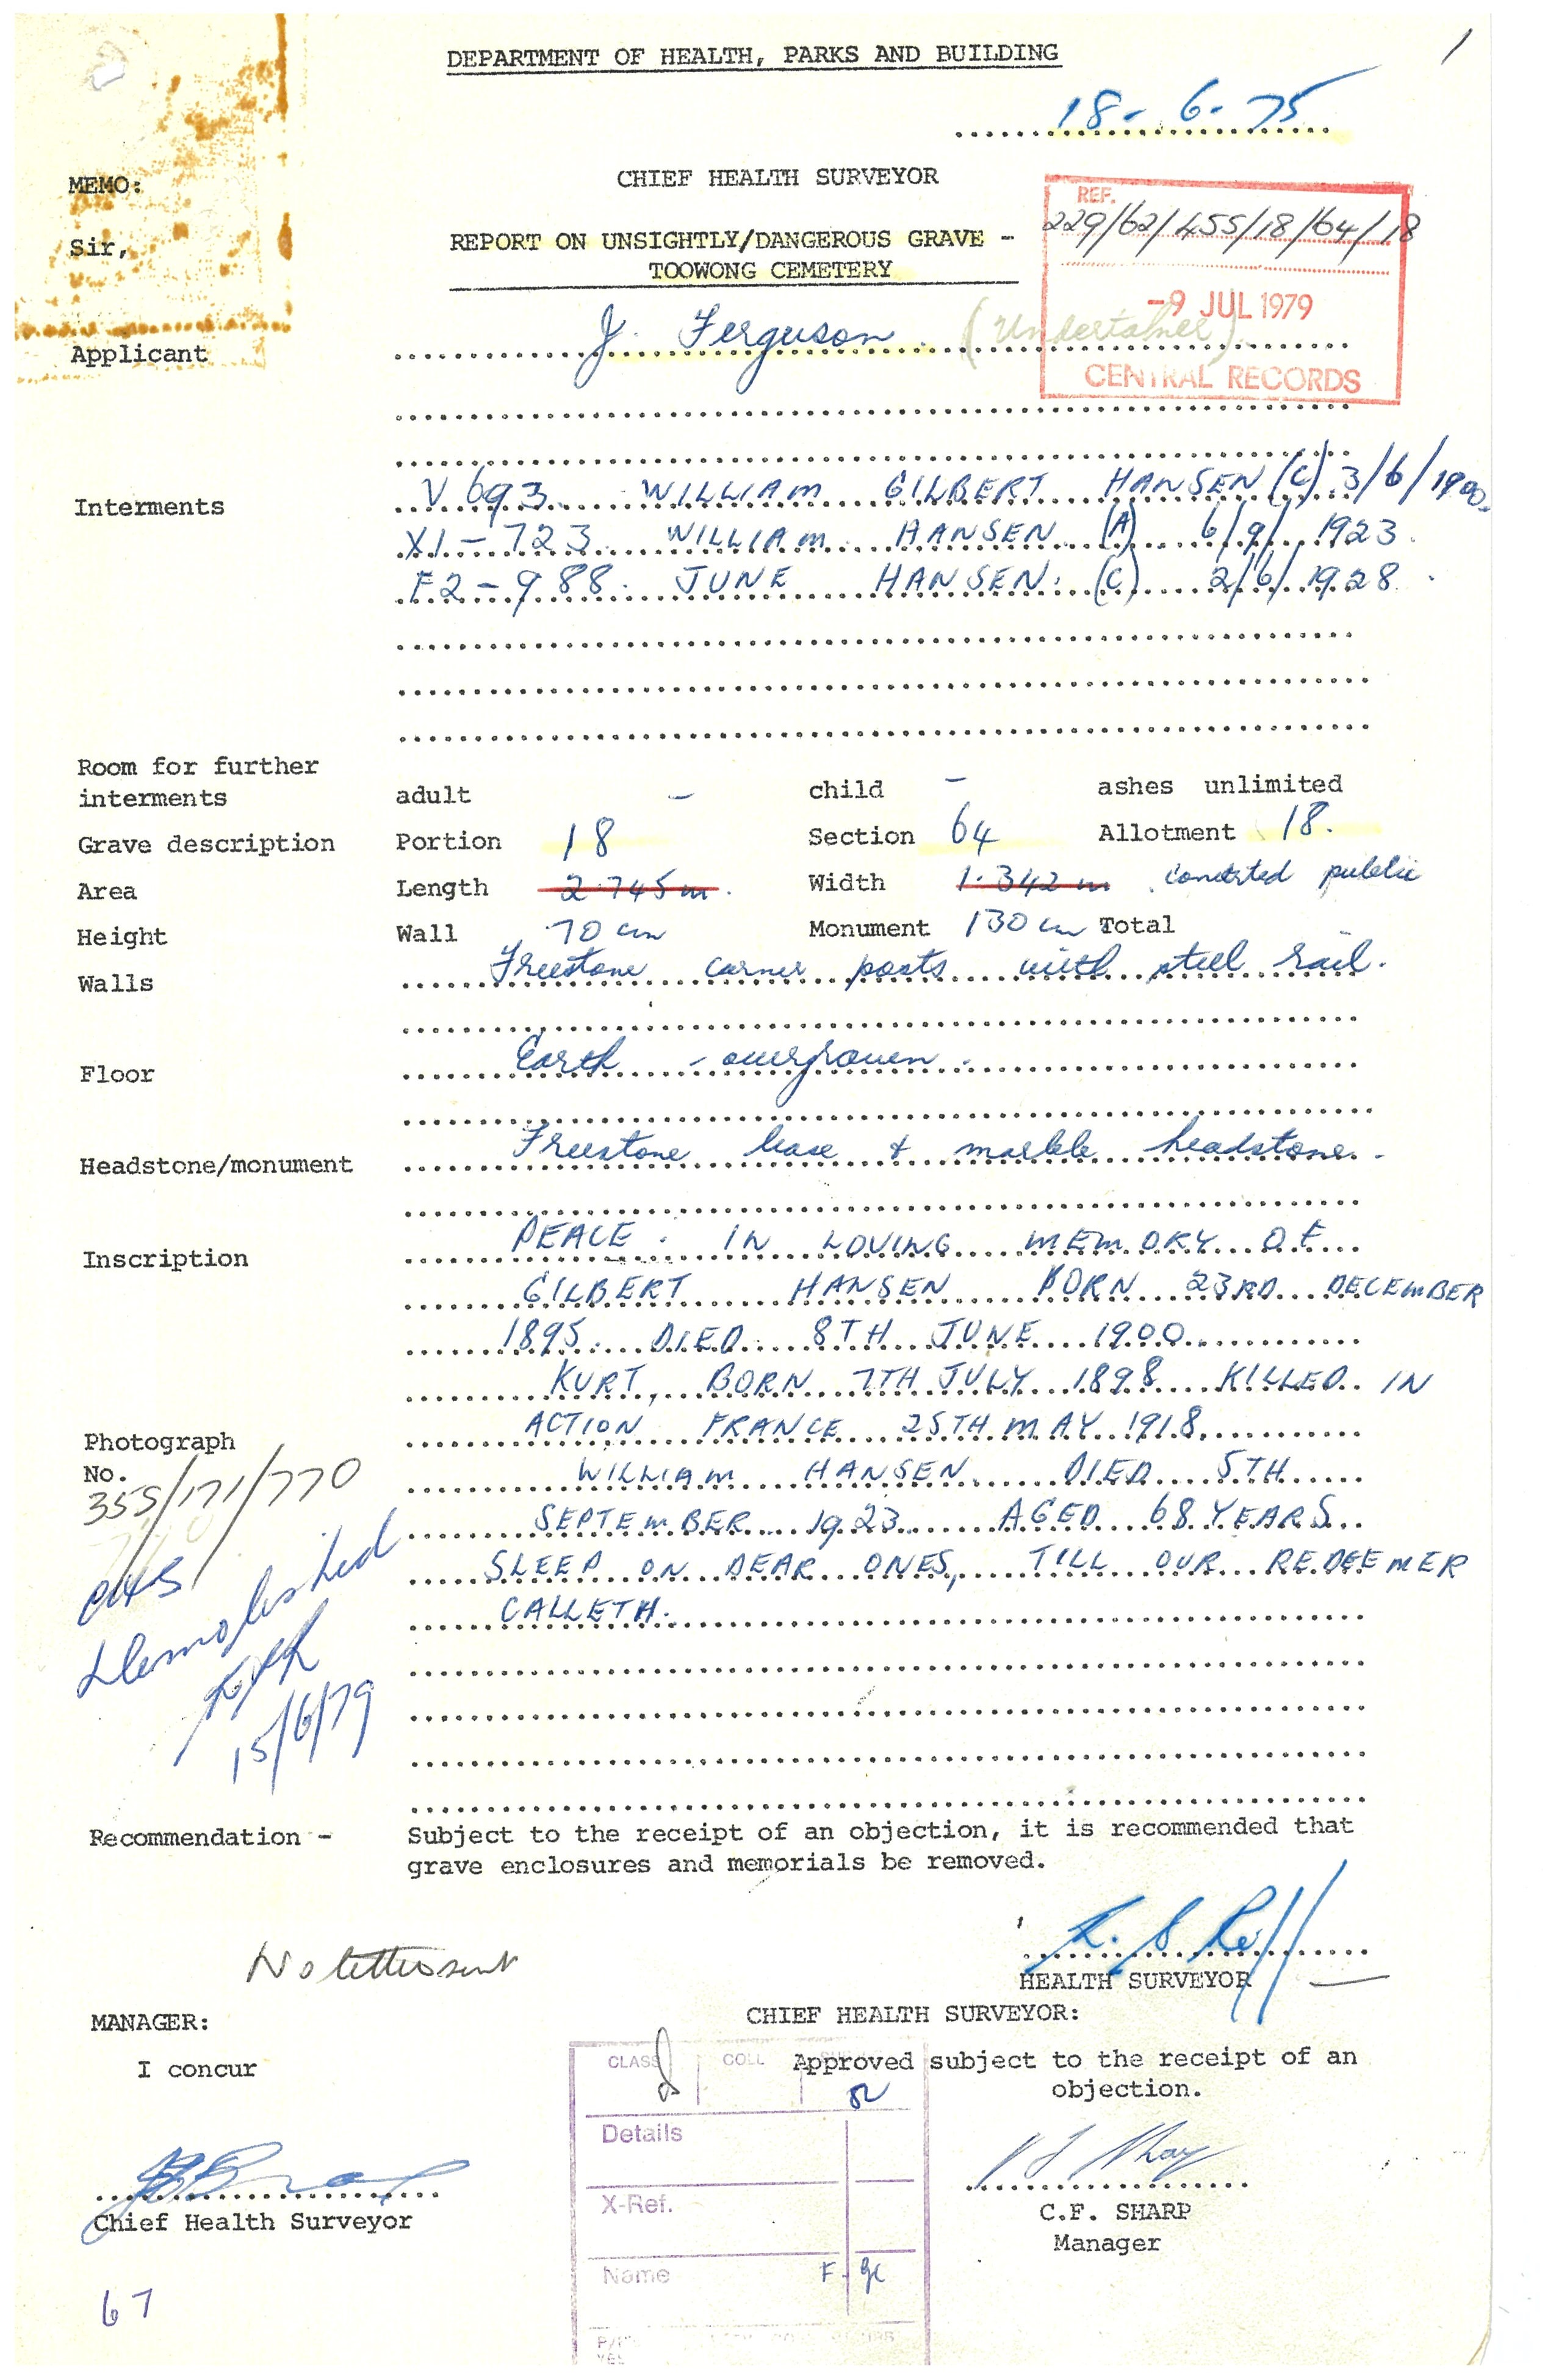 1
DEPARTMENT OF HEALTH, PARKS AND BUILDING
18-6-75
MEMO:
CHIEF HEALTH SURVEYOR
REF.
229/62/455/18/64/18
Sir,
REPORT ON UNSIGHTLY/DANGEROUS GRAVE -
TOOWONG CEMETERY
-9 JUL 1979
CENTRAL RECORDS
Applicant J. Ferguson. (Undertaker).
Interments V693 WILLIAM GILBERT HANSEN (C) 3/6/1900.
XI-723 WILLIAM HANSEN (A) 6/9/1923.
F2-988. JUNE HANSEN. (C) 2/6/1928.
Room for further
interments adult - child - ashes unlimited
Grave description Portion 18 Section 64 Allotment 18.
Area Length 2.745m. Width 1.342 m public
Height Wall 70 cm Monument 130 cm Total
Walls Freestone corner posts with steel rail.
Floor Earth - overgrown.
Headstone/monument Freestone base & marble headstone.
Inscription PEACE. IN LOVING MEMORY OF
GILBERT HANSEN BORN 23RD DECEMBER
1895. DIED 8TH JUNE 1900
KURT, BORN 7TH JULY 1898 KILLED IN
ACTION FRANCE 25TH MAY 1918.
WILLIAM HANSEN DIED 5TH
SEPTEMBER 1923 AGED 68 YEARS
SLEEP ON DEAR ONES, TILL OUR REDEEMER
CALLETH.
Photograph
No.
355/171/770
Demolished
15/6/79
Recommendation - Subject to the receipt of an objection, it is recommended that
grave enclosures and memorials be removed.
No letter sent
HEALTH SURVEYOR
MANAGER:
CHIEF HEALTH SURVEYOR:
I concur
Approved subject to the receipt of an
objection.
CLASS COLL
Details
X-Ref.
Name F
Chief Health Surveyor
C.F. SHARP
Manager
67